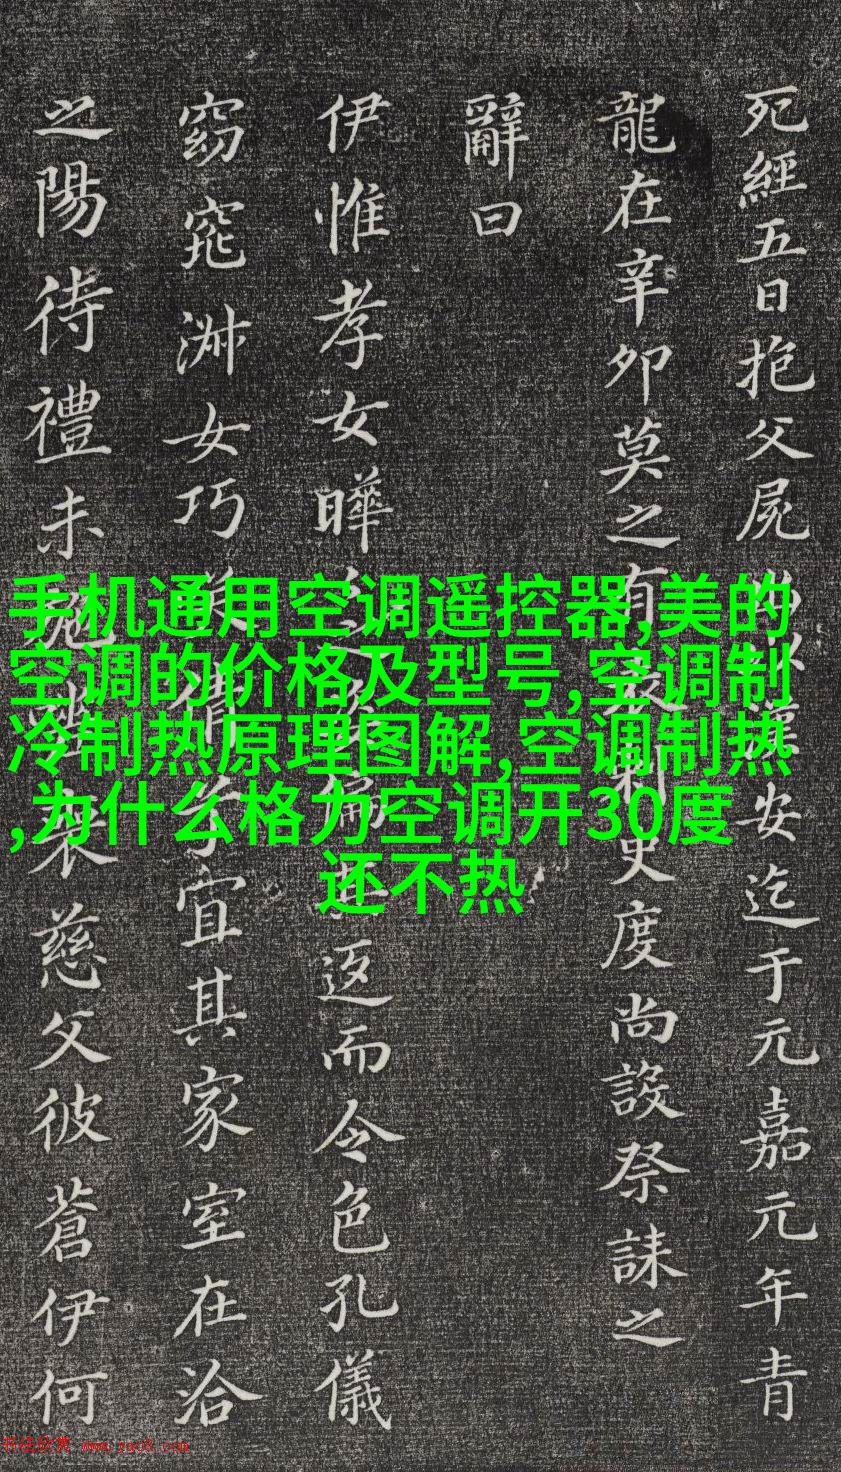 死經五日抱父屍漢安迄于元嘉元年青
龍在辛卯莫之有史度尚設祭誄之
辭曰
伊惟孝女曄返而令色孔儀
窈窕淑女巧倩宜其家室在洽
之陽待禮未慈父彼蒼伊何
手机通用空调遥控器,美的
空调的价格及型号,空调制
冷制热原理图解,空调制热
,为什么格力空调开30度
还不热
书法欣赏 www.yac8.com